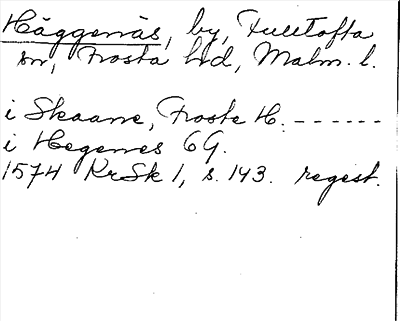 Häggenäs, by, Fulltofta
sn, Frosta hd, Malm. l.
i Skaane, Froste H. ------
i Hegenes 6 G.
1574 KrSk 1, s. 143. regest.